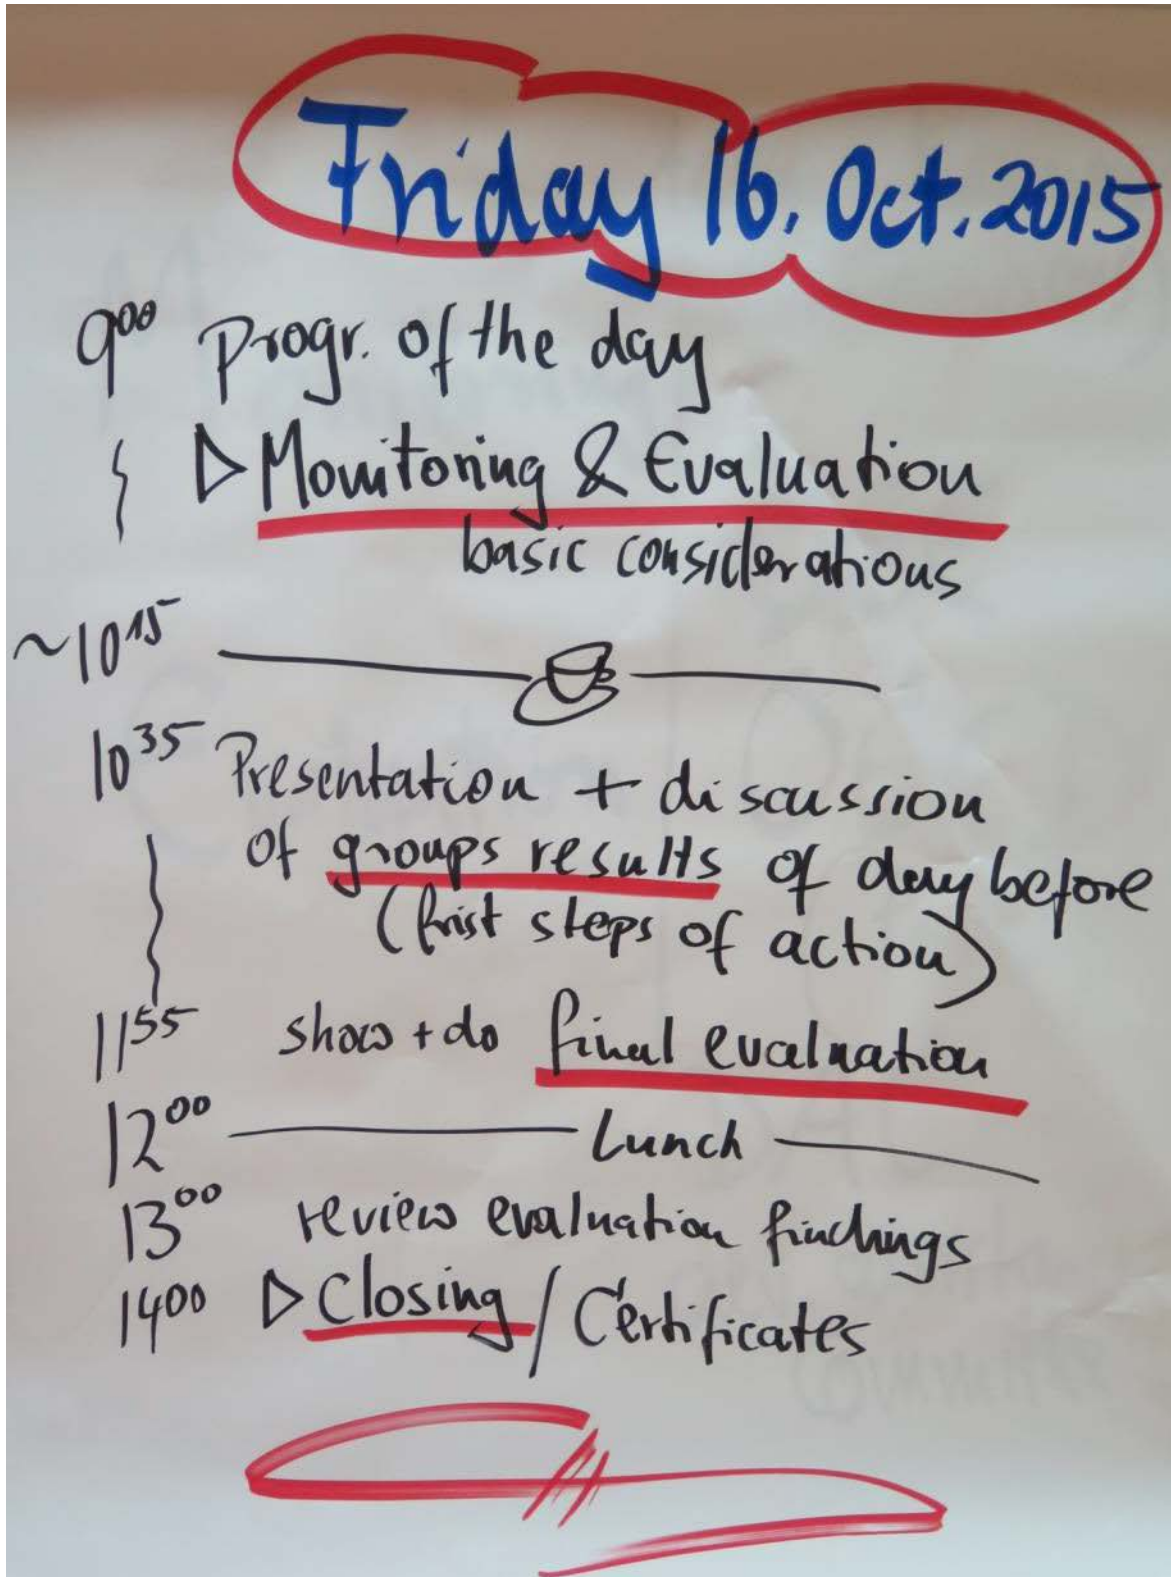 Friday 16. Oct. 2015
9⁰⁰ Progr. of the day
▷ Monitoring & Evaluation
basic considerations
~10¹⁵
10³⁵ Presentation + discussion
of groups results of day before
(first steps of action)
11⁵⁵ show + do final evaluation
12⁰⁰ Lunch
13⁰⁰ review evaluation findings
14⁰⁰ ▷ Closing / Certificates